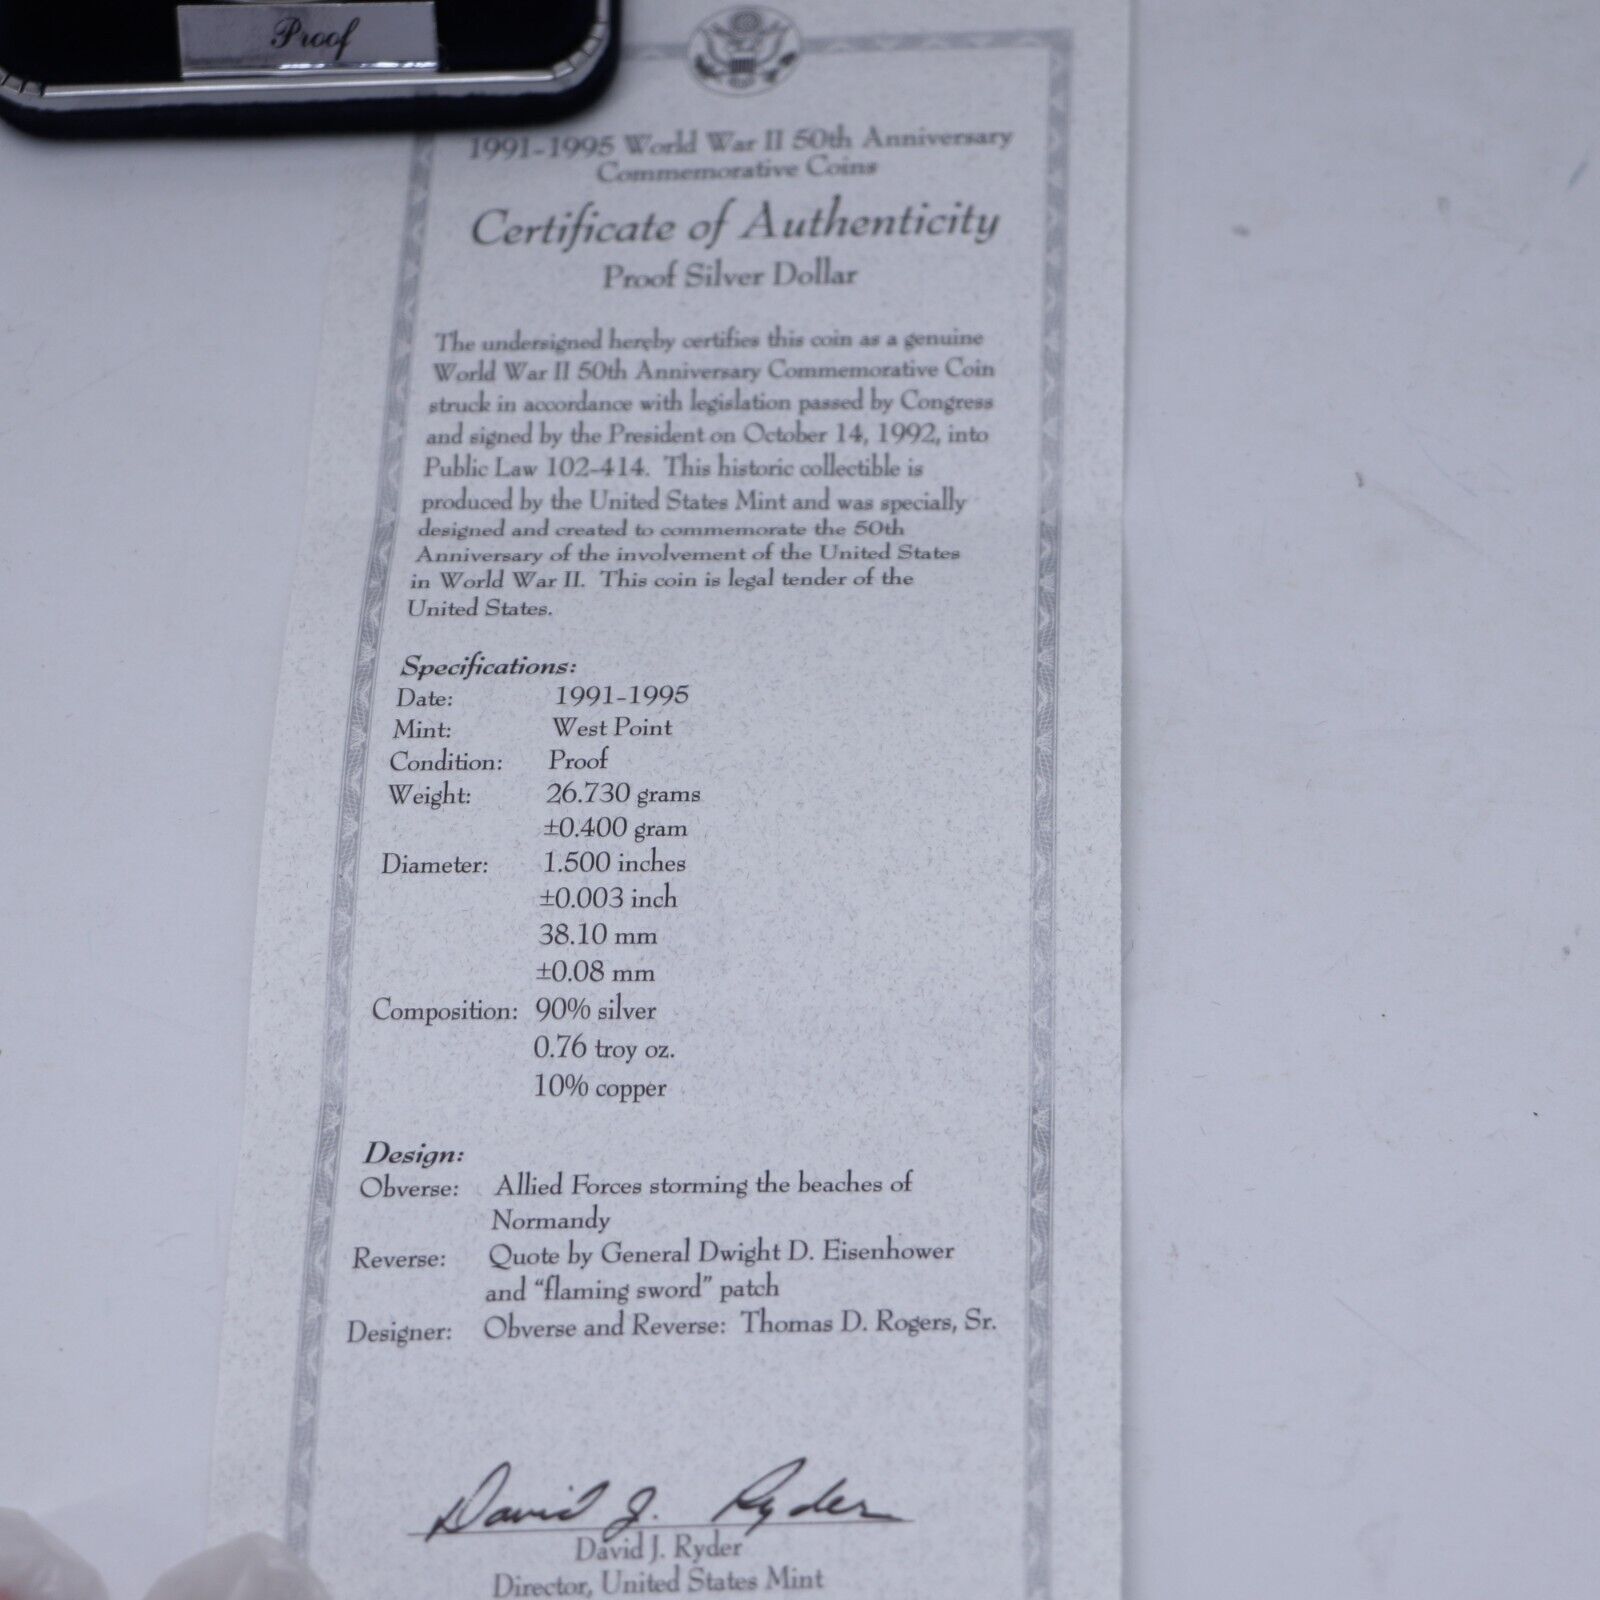 Proof
1991-1995 World War II 50th Anniversary
Commemorative Coins
Certificate of Authenticity
Proof Silver Dollar
The undersigned hereby certifies this coin as a genuine
World War II 50th Anniversary Commemorative Coin
struck in accordance with legislation passed by Congress
and signed by the President on October 14, 1992, into
Public Law 102-414. This historic collectible is
produced by the United States Mint and was specially
designed and created to commemorate the 50th
Anniversary of the involvement of the United States
in World War II. This coin is legal tender of the
United States.
Specifications:
Date: 1991-1995
Mint: West Point
Condition: Proof
Weight: 26.730 grams
±0.400 gram
Diameter: 1.500 inches
±0.003 inch
38.10 mm
±0.08 mm
Composition: 90% silver
0.76 troy oz.
10% copper
Design:
Obverse: Allied Forces storming the beaches of
Normandy
Reverse: Quote by General Dwight D. Eisenhower
and “flaming sword” patch
Designer: Obverse and Reverse: Thomas D. Rogers, Sr.
David J. Ryder
David J. Ryder
Director, United States Mint